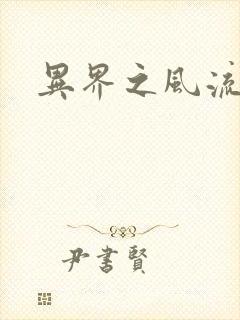 異界之風流
尹書賢